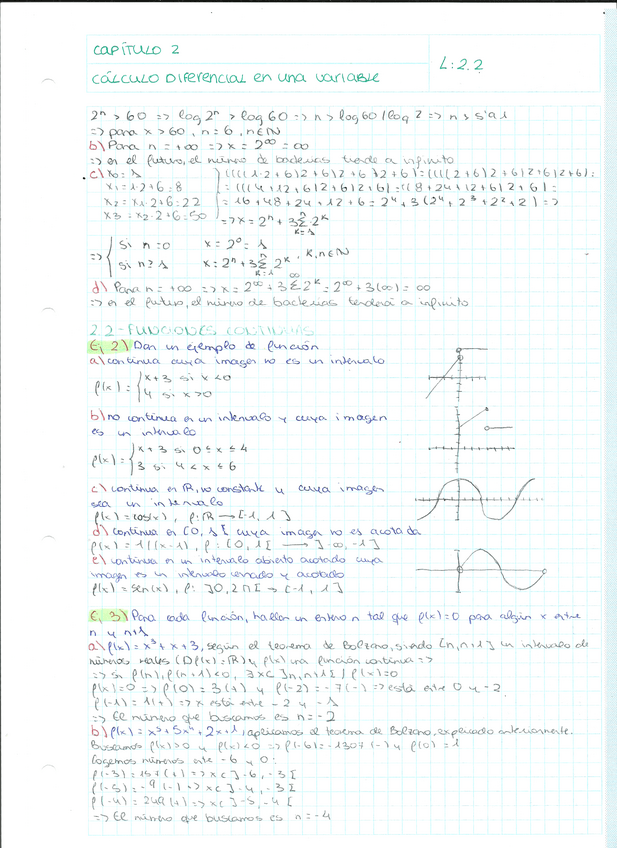 CAPÍTULO 2
CÁLCULO DIFERENCIAL en una variable
L:2.2
2ⁿ > 60 => log 2ⁿ > log 60 => n > log 60 / log 2 => n > 5'91
=> para x > 60, n = 6, n ∈ N
b) Para n = +∞ => x = 2^∞ = ∞
=> en el futuro, el número de bacterias tiende a infinito
c) x₀ = 1
x₁ = 1·2+6 = 8
x₂ = x₁·2+6 = 22
x₃ = x₂·2+6 = 50
((((1·2+6)2+6)2+6)2+6) = (((2+6)2+6)2+6)2+6) =
= (((4+12+6)2+6)2+6) = ((8+24+12+6)2+6) =
= 16+48+24+12+6 = 2⁴+3(2⁴+2³+2²+2) =>
=> x = 2ⁿ + 3 Σ 2ᵏ
k=1
=> { si n=0 x = 2⁰ = 1
si n≥1 x = 2ⁿ + 3 Σ 2ᵏ, k, n ∈ N
k=1
d) Para n = +∞ => x = 2^∞ + 3 Σ 2ᵏ = 2^∞ + 3(∞) = ∞
=> en el futuro, el número de bacterias tenderá a infinito
2.2 - FUNCIONES CONTINUAS
Ej 2) Dan un ejemplo de función
a) continua cuya imagen no es un intervalo
f(x) = { x+3 si x<0
4 si x>0
b) no continua en un intervalo y cuya imagen
es un intervalo
f(x) = { x+3 si 0≤x≤4
3 si 4<x≤6
c) continua en R, no constante y cuya imagen
sea un intervalo
f(x) = cos(x), f: R → [-1, 1]
d) continua en [0, 1[ cuya imagen no es acotada
f(x) = 1/(x-1), f: [0, 1[ → ]-∞, -1]
e) continua en un intervalo abierto acotado cuya
imagen es un intervalo cerrado y acotado
f(x) = sen(x), f: ]0, 2π[ → [-1, 1]
Ej 3) Para cada función, hallar un entero n tal que f(x)=0 para algún x entre
n y n+1
a) f(x) = x³+x+3, según el teorema de Bolzano, siendo [n, n+1] un intervalo de
números reales (Df(x)=R) y f(x) una función continua =>
=> si f(n)·f(n+1)<0, ∃x ∈ ]n, n+1[ / f(x)=0
f(x)=0 => f(0) = 3 (+) y f(-2) = -7 (-) => está entre 0 y -2
f(-1) = 1 (+) => x está entre -2 y -1
=> El número que buscamos es n = -2
b) f(x) = x⁵+5x⁴+2x+1, aplicamos el teorema de Bolzano, explicado anteriormente.
Buscamos f(x)>0 y f(x)<0 => f(-6) = -1307 (-) y f(0) = 1
Cogemos números entre -6 y 0:
f(-3) = 157 (+) => x ∈ ]-6, -3[
f(-5) = -9 (-) => x ∈ ]-4, -3[
f(-4) = 249 (+) => x ∈ ]-5, -4[
=> El número que buscamos es n = -4